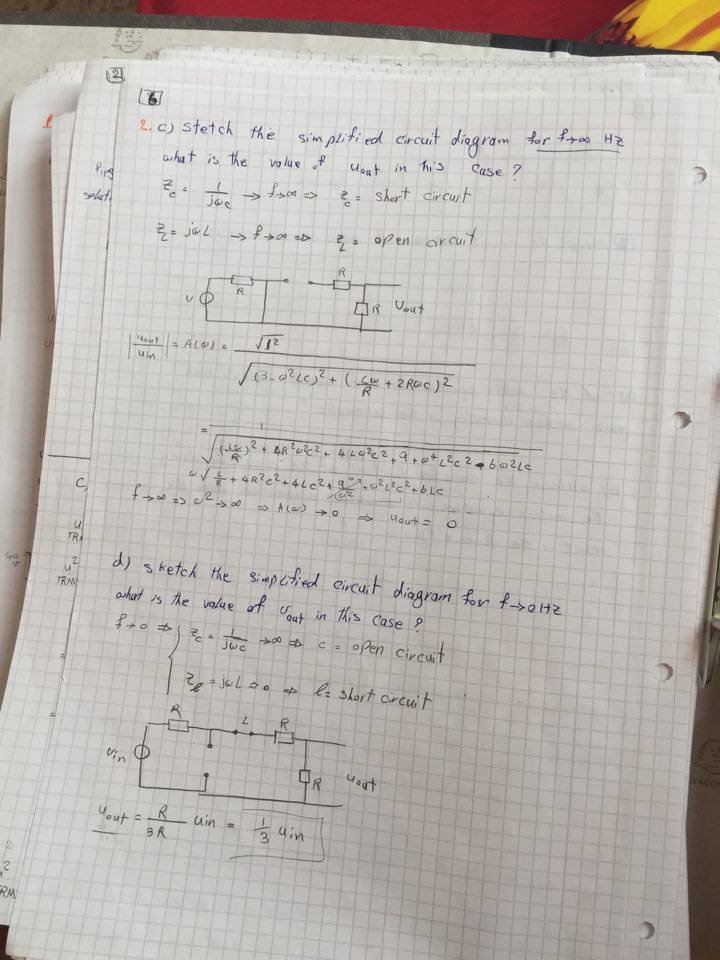 2
6
2. c) stetch the simplified circuit diagram for f→∞ Hz
what is the value of uout in this case?
Zc = 1/jωc → f→∞ ⇒ Zc = short circuit
ZL = jωL → f→∞ ⇒ ZL = open circuit
R
R
U
R
Uout
|uout/uin| = A(ω) = √1² / √((3-ω²LC)² + (Lω/R + 2Rωc)²)
= 1 / √((Lω/R)² + 4R²ω²c² + 4Lω²c² + 9 + ω⁴L²c² - 6ω²LC
ω√(L/R + 4R²c² + 4Lc² + 9/ω² + ω²L²c² + 6LC
f→∞ ⇒ ω²→∞ ⇒ A(ω) → 0 ⇒ uout = 0
d) sketch the simplified circuit diagram for f→0Hz
what is the value of Uout in this case?
f→0 ⇒ { Zc = 1/jωc →∞ ⇒ c = open circuit
Zl = jωL ⇒ 0 ⇒ l = short circuit
R
L
R
Uin
R
Uout
Uout = R/3R uin = 1/3 uin
C
u
TRM
u²
TRM
u²
TRM